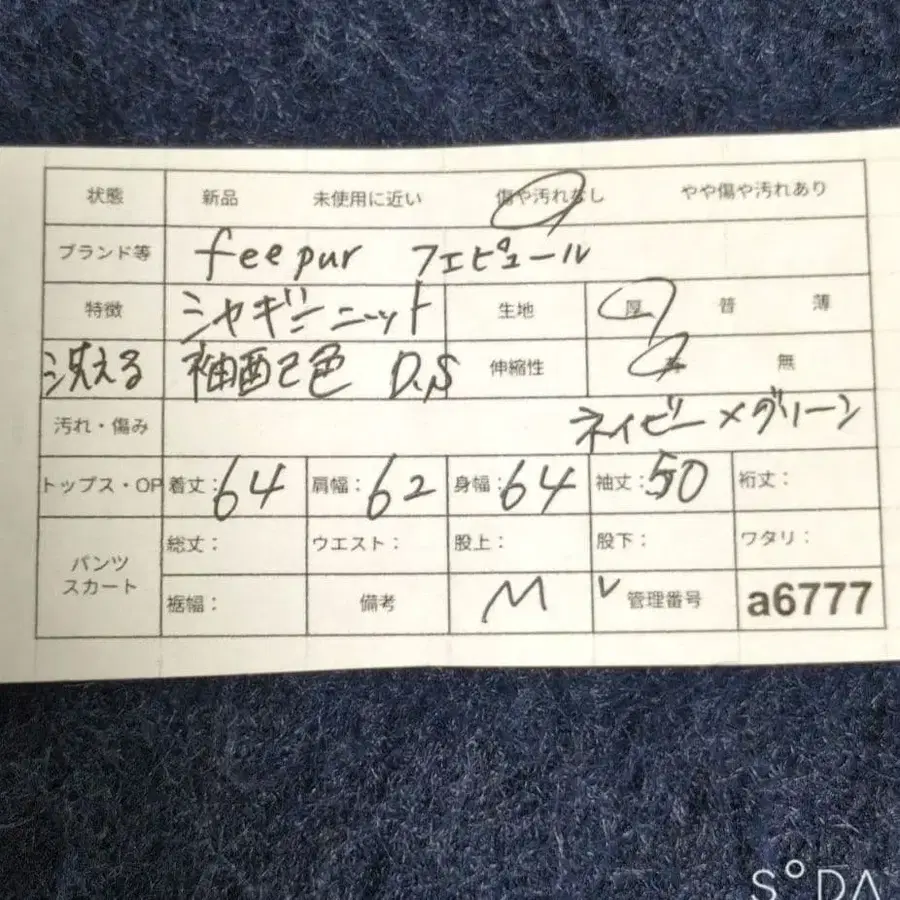 状態 新品 未使用に近い 傷や汚れなし やや傷や汚れあり
ブランド等 fee pur フェピュール
特徴 シャギーニット 生地 厚 普 薄
洗える 袖配色 D.S 伸縮性 有 無
汚れ・傷み ネイビー×グリーン
トップス・OP 着丈：64 肩幅：62 身幅：64 袖丈：50 裄丈：
パンツ スカート 総丈： ウエスト： 股上： 股下： ワタリ：
裾幅： 備考 M V 管理番号 a6777
SODA